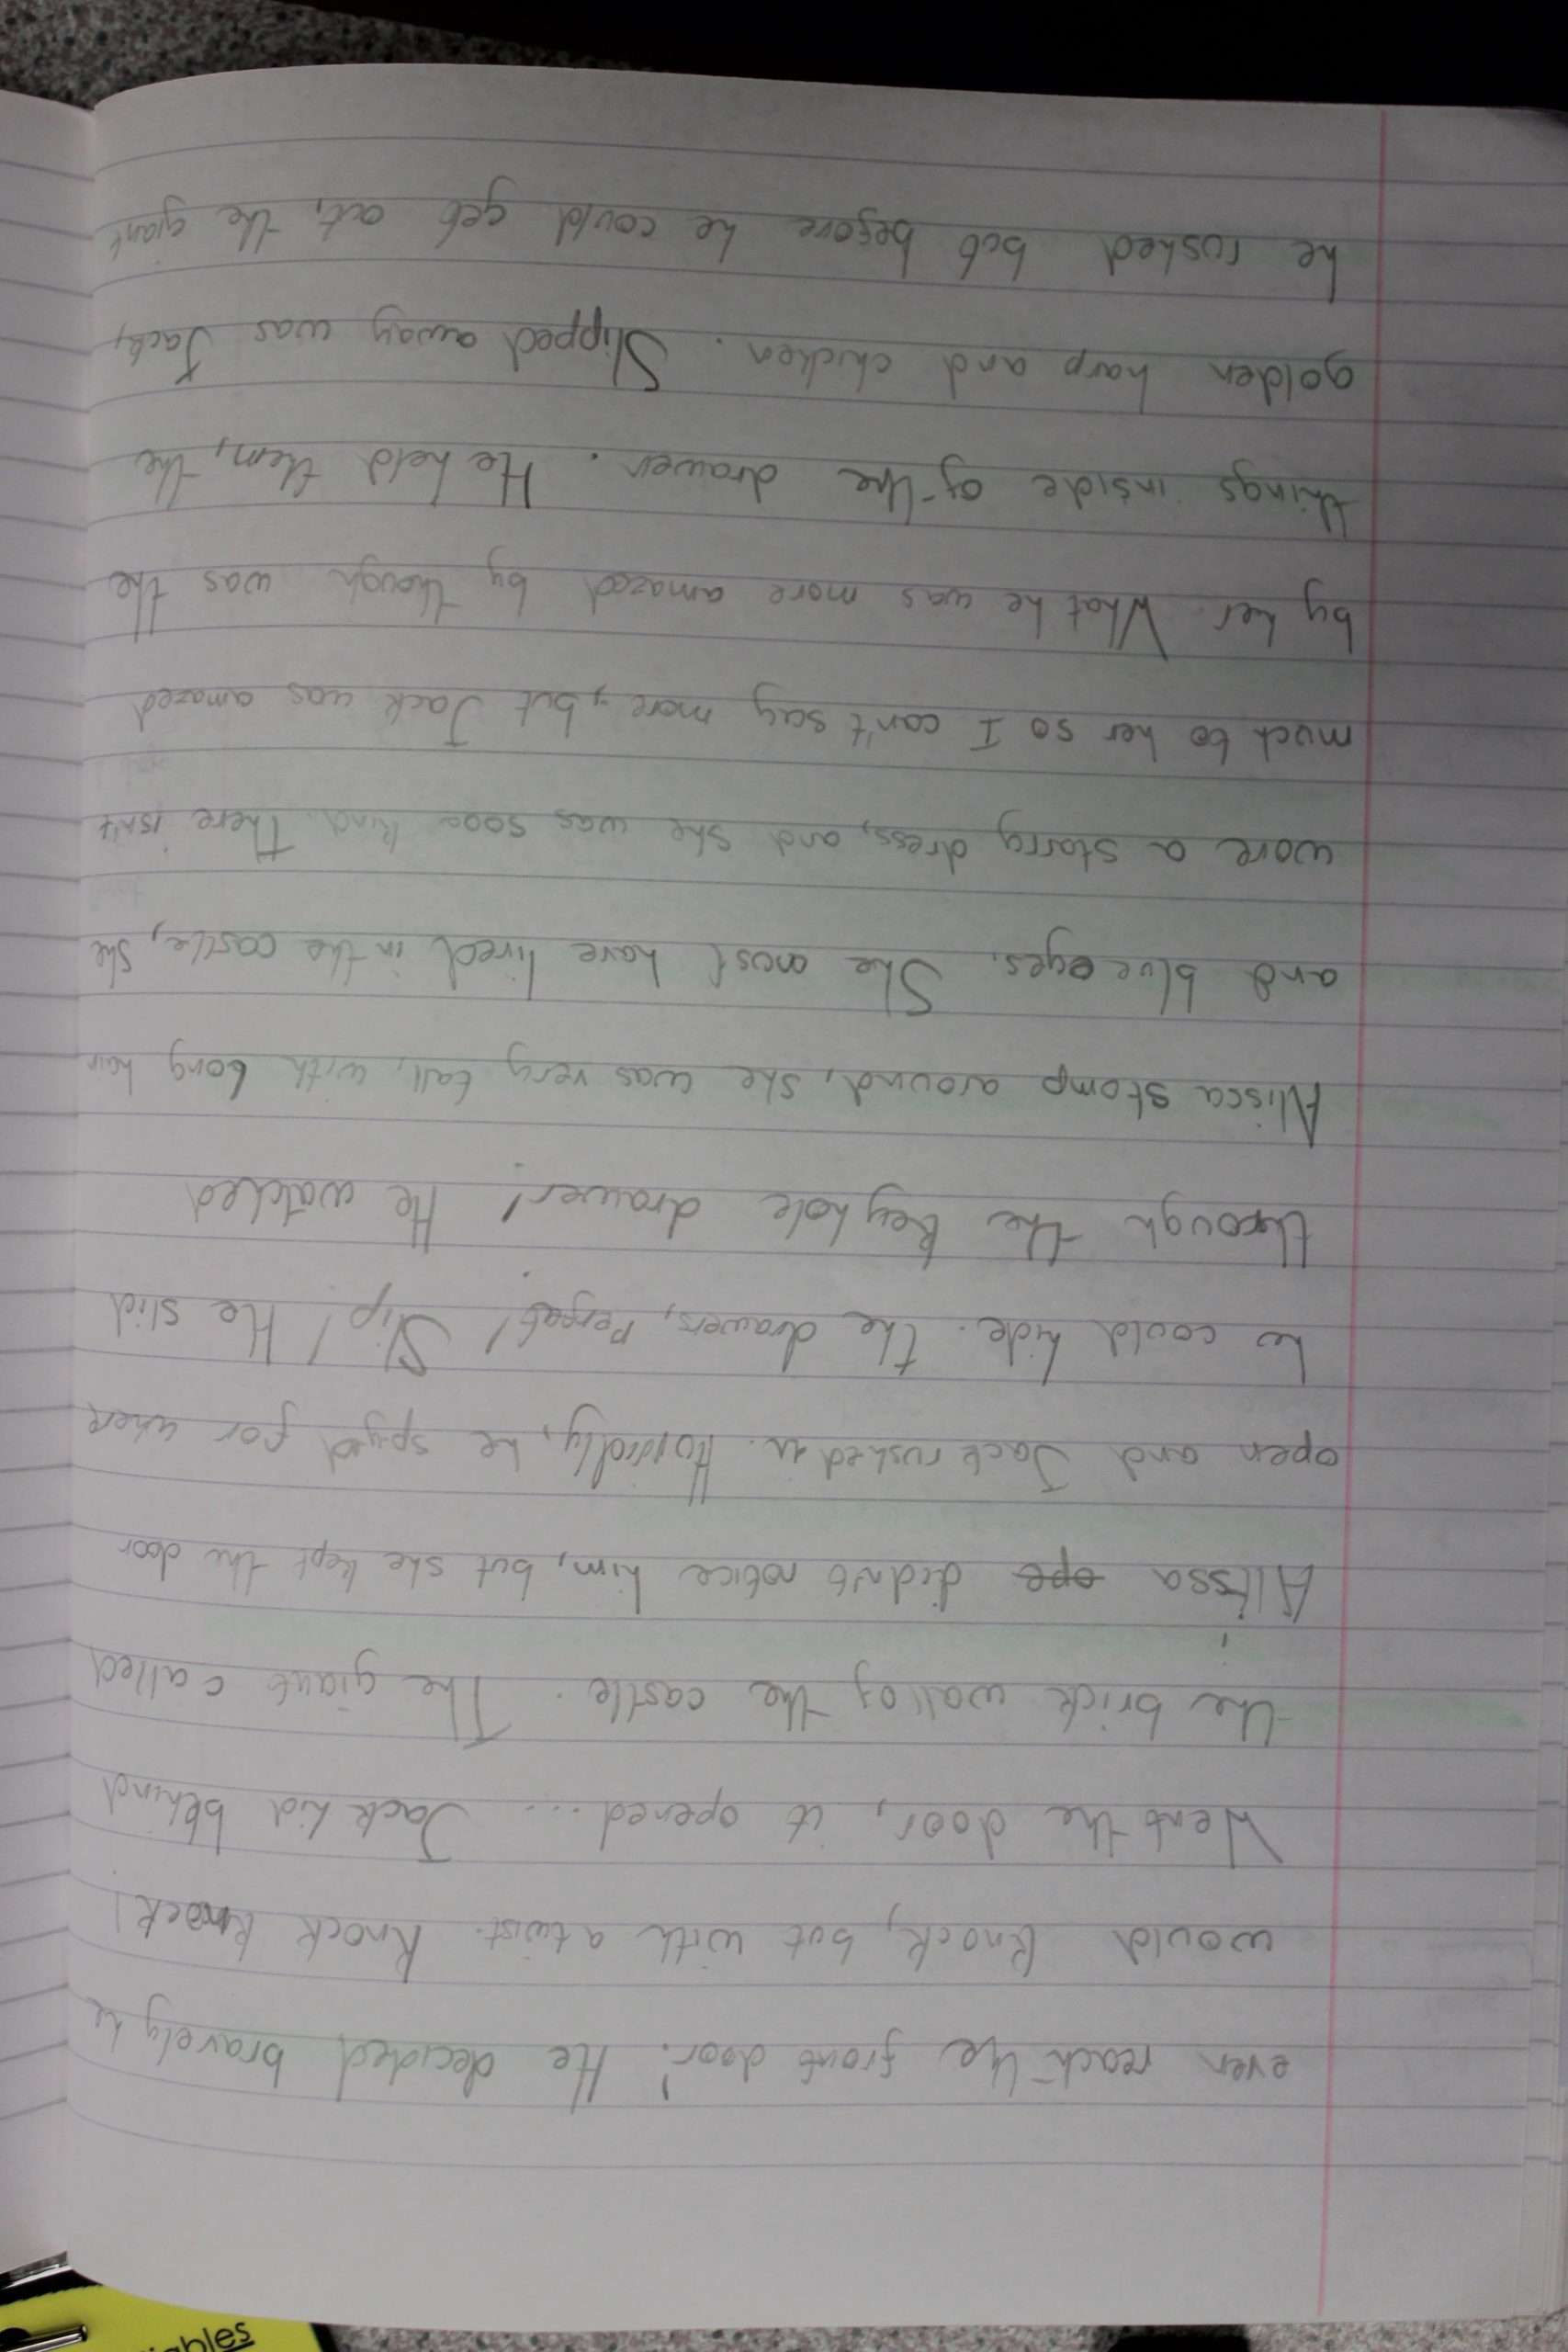 even reach the front door! He decided bravely he
would knock, but with a twist. Knock knock!
Went the door, it opened.... Jack hid behind
the brick wall of the castle. The giant called
Alissa didn't notice him, but she kept the door
open and Jack rushed in. Hurridly, he spyed for where
he could hide. The drawers, Perfect! Slip! He slid
through the keyhole drawer! He watched
Alissa stomp around, she was very tall, with long hair
and blue eyes. She must have lived in the castle, she
wore a starry dress, and she was sooo kind. There isn't
much to her so I can't say more, but Jack was amazed
by her. What he was more amazed by though was the
things inside of the drawer. He held them, the
golden harp and chicken. Slipped away was Jack,
he rushed but before he could get out, the giant
iables